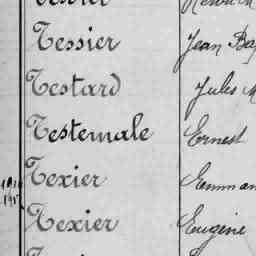 Tessier Jean Bap
Testard Jules M
Testemale Ernest
Texier Emman
Texier Eugène